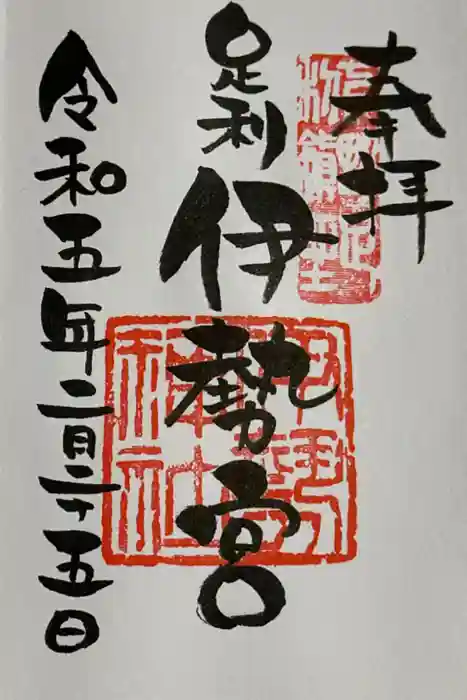 奉拝
足利
伊勢宮
令和五年二月二十五日
伊勢
神社